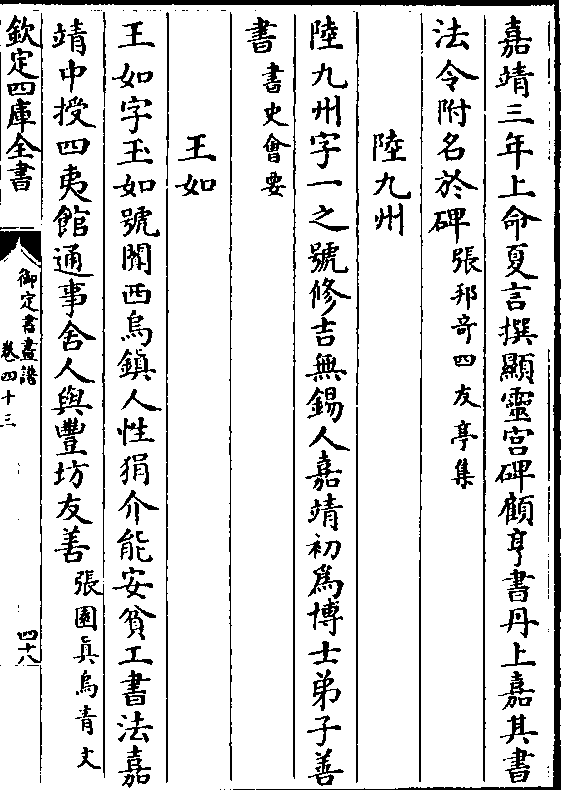 嘉靖三年上命夏言撰顯靈宫碑顧亨書丹上嘉其書
法令附名於碑張邦竒四友亭集
陸九州
陸九州字一之號修吉無錫人嘉靖初爲博士弟子善
書書史會要
王如
王如字玉如號關西烏鎮人性狷介能安貧工書法嘉
靖中授四夷館通事舍人與豐坊友善張園真烏青文
欽定四庫全書
御定書畫譜
卷四十三
四十八